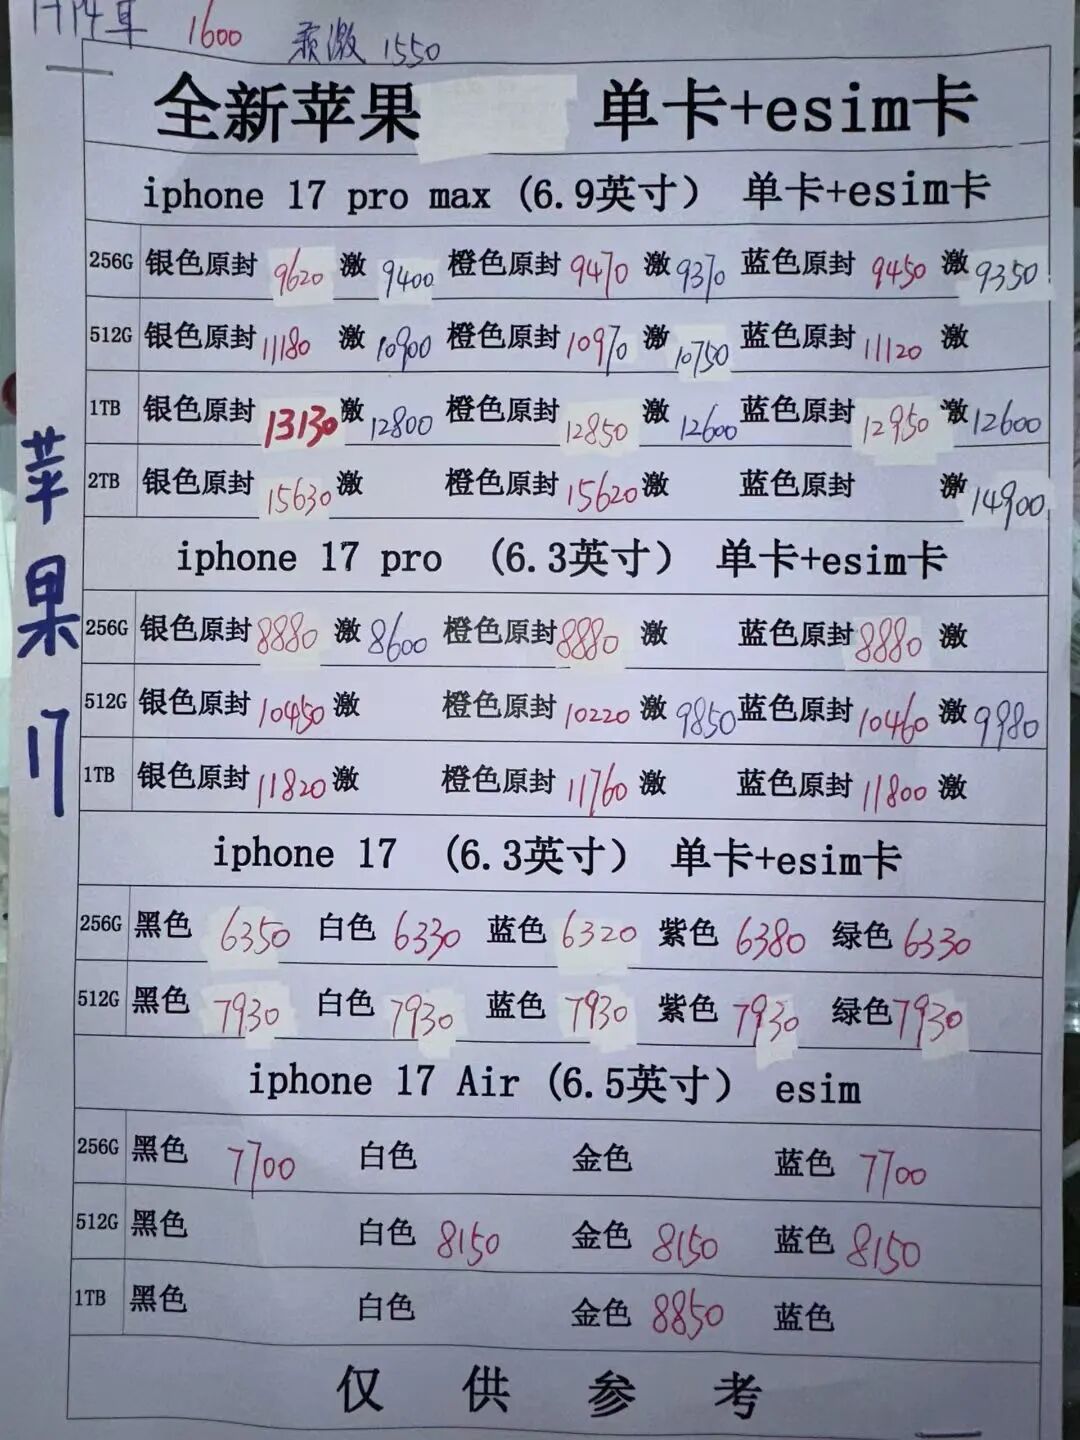 1600 激 1550
全新苹果 单卡+esim卡
iphone 17 pro max (6.9英寸) 单卡+esim卡
256G 银色原封 9620 激 9400 橙色原封 9470 激 9370 蓝色原封 9450 激 9350
512G 银色原封 11180 激 10900 橙色原封 10970 激 10750 蓝色原封 11120 激
1TB 银色原封 13130 激 12800 橙色原封 12850 激 12600 蓝色原封 12950 激 12600
2TB 银色原封 15630 激 橙色原封 15620 激 蓝色原封 激 14900
iphone 17 pro (6.3英寸) 单卡+esim卡
256G 银色原封 8880 激 8600 橙色原封 8880 激 蓝色原封 8880 激
512G 银色原封 10450 激 橙色原封 10220 激 9850 蓝色原封 10460 激 9980
1TB 银色原封 11820 激 橙色原封 11760 激 蓝色原封 11800 激
iphone 17 (6.3英寸) 单卡+esim卡
256G 黑色 6350 白色 6330 蓝色 6320 紫色 6380 绿色 6330
512G 黑色 7930 白色 7930 蓝色 7930 紫色 7930 绿色 7930
iphone 17 Air (6.5英寸) esim
256G 黑色 7700 白色 金色 蓝色 7700
512G 黑色 白色 8150 金色 8150 蓝色 8150
1TB 黑色 白色 金色 8850 蓝色
仅供参考
苹果17